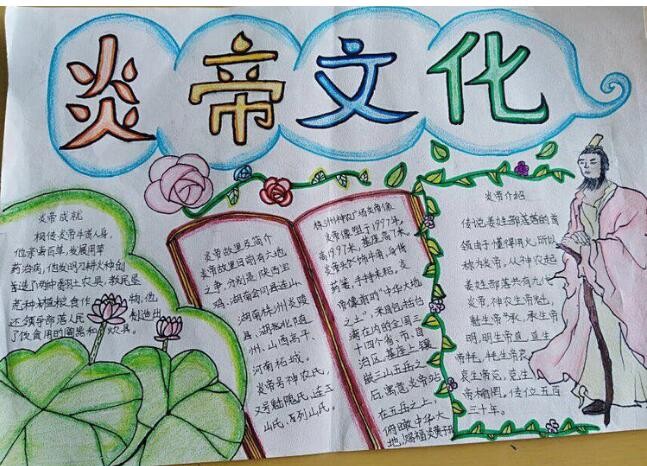 炎帝文化
炎帝成就
相传炎帝牛首人身,
他亲尝百草,发展用草
药治病,他发明刀耕火种创
造了两种翻土农具,教民垦
荒种植粮食作物,他
还领导部落人民制造出
了饮食用的陶器和炊具。
炎帝故里及简介
炎帝故里目前有六地
之争,分别是:陕西宝
鸡、湖南会同县连山、
湖南株州炎陵
县、湖北随
州、山西高平、
河南柘城。
炎帝号神农氏,
又号魁隗氏、连山
山氏、列山氏。
株洲神农广场炎帝像
炎帝像塑于1997年,
高1997米,基座高7米,
药箸,手持耒耜,炎
帝像颌"中华大地
之上",采自包括台
湾在内的全国三
十四个省、市、自
治区,基座上镶
嵌三山五岳之
石,寓意炎帝站
在五岳之上,
俯瞰中华大
地,赐福炎黄子
炎帝介绍
传说姜姓部落的首
领由于懂得用火所以
称为炎帝,从神农起
姜姓部落共有九代
炎帝,神农生帝魁,
魁生帝承,承生帝
明,明生帝直,直生
帝牦,牦生帝哀,
哀生帝克,克生
帝榆罔,传位五百
三十年。